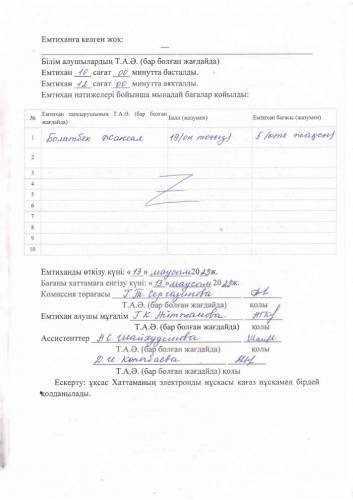 Емтиханға келген жоқ:
—
Білім алушылардың Т.А.Ә. (бар болған жағдайда)
Емтихан 10 сағат 00 минутта басталды.
Емтихан 12 сағат 00 минутта аяқталды.
Емтихан нәтижелері бойынша мынадай бағалар қойылды:
№ Емтихан тапсырушының Т.А.Ә. (бар болған жағдайда) Балл (жазумен) Емтихан бағасы (жазумен)
1 Болатбек Жансая 19 (он тоғыз) 5 (өте жақсы)
2
3
4
5
6
7
8
9
10
Емтиханды өткізу күні: « 13 » маусым 2025ж.
Бағаны хаттамаға енгізу күні: « 13 » маусым 2025ж.
Комиссия төрағасы Г.Т. Сергазинова
Т.А.Ә. (бар болған жағдайда) қолы
Емтихан алушы мұғалім Г.К.
Т.А.Ә. (бар болған жағдайда) қолы
Ассистенттер
Т.А.Ә. (бар болған жағдайда) қолы
Д.И.
Т.А.Ә. (бар болған жағдайда) қолы
Ескерту: ұқсас Хаттаманың электронды нұсқасы қағаз нұсқамен бірдей
қолданылады.